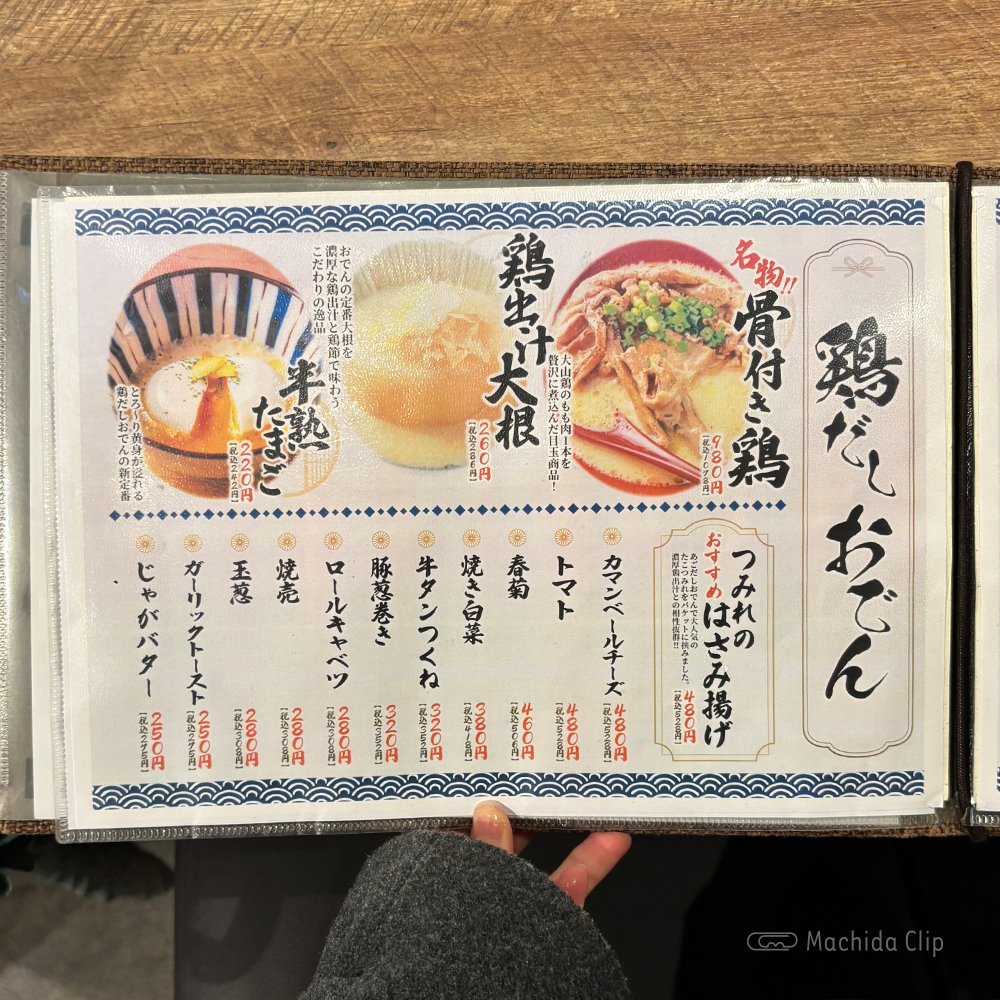 鶏だしおでん
名物!!
骨付き鶏
大山鶏のもも肉1本を
贅沢に煮込んだ目玉商品!
980円
【税込1078円】
鶏出汁大根
おでんの定番大根を
濃厚な鶏出汁と鶏節で味わう
こだわりの逸品
260円
【税込286円】
半熟
たまご
とろ~り黄身が溢れる
鶏だしおでんの新定番
220円
【税込242円】
おすすめ
つみれの
はさみ揚げ
あごだしおでんで大人気の
たこつみれをバケットに挟みました。
濃厚鶏出汁との相性抜群!!
480円
【税込528円】
カマンベールチーズ
480円
【税込528円】
トマト
480円
【税込528円】
春菊
460円
【税込506円】
焼き白菜
380円
【税込418円】
牛タンつくね
320円
【税込352円】
豚葱巻き
320円
【税込352円】
ロールキャベツ
280円
【税込308円】
焼売
280円
【税込308円】
玉葱
280円
【税込308円】
ガーリックトースト
250円
【税込275円】
じゃがバター
250円
【税込275円】
Machida Clip